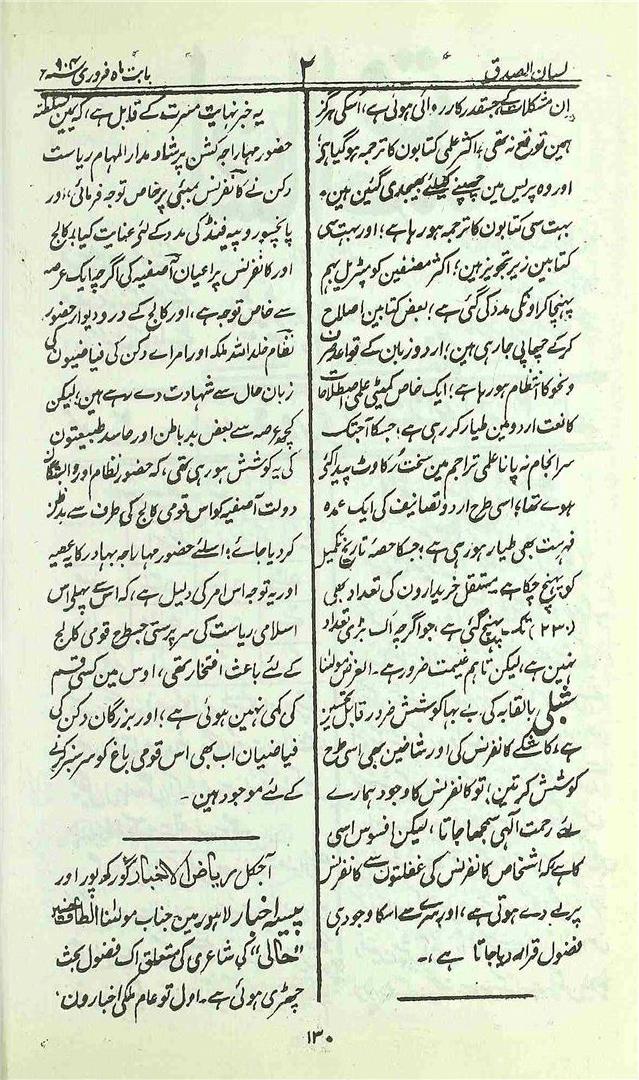 لسان الصدق
۲
بابت ماہ فروری سنہ ۹۰۴
اِن مشکلات کے جسقدر کارروائی ہوئی ہے، اُسکی ہرگز
ہمین توقع نہ تھی، اکثر علمی کتابون کا ترجمہ ہوگیا ہے
اور وہ پریس مین چھپنے کیلئے بھیجدی گئین ہین۔
بہت سی کتابون کا ترجمہ ہو رہا ہے؛ اور بہت سی
کتابین زیر تجویز ہین؛ اکثر مصنفین کو مٹریل بہم
پہنچا کر اونکی مدد کی گئی ہے؛ بعض کتابین اصلاح
کرکے چھاپی جا رہی ہین؛ اردو زبان کے قواعد صرف
و نحو کا انتظام ہو رہا ہے؛ ایک خاص کمیٹی علمی اصطلاحات
کا لغت اردو مین طیار کر رہی ہے، جسکا آجتک
سرانجام نہ پانا علمی تراجم مین سخت رکاوٹ پیدا کئے
ہوے تھا؛ اسی طرح اردو تصانیف کی ایک عمدہ
فہرست بھی طیار ہو رہی ہے؛ جسکا حصہ تاریخ تکمیل
کو پہنچ چکا ہے۔ مستقل خریدارون کی تعداد بھی
(۲۳۰) تک پہنچ گئی ہے، جو اگرچہ اک بڑی تعداد
نہین ہے، لیکن تاہم غنیمت ضرور ہے۔ الغرض مولٰنا
شبلی بالقابہ کی بے بہا کوشش ضرور قابل تحسین
ہے، کاشکے کانفرنس کی اور شاخین بھی اسی طرح
کوشش کرتین؛ تو کانفرنس کا وجود ہمارے
لئے رحمت الٰہی سمجھا جاتا، لیکن افسوس اسی
کا ہے کہ اشخاص کانفرنس کی غفلتون سے کانفرنس
پر بے دے ہوتی ہے، اور سرے سے اسکا وجود ہی
فضول قرار دیا جاتا ہے،۔
یہ خبر نہایت مسرت کے قابل ہے، کہ یمین السلطنۃ
حضور مہاراجہ کشن پرشاد مدار المہام ریاست
دکن نے کانفرنس بمبئی پر خاص توجہ فرمائی، اور
پانچسو روپیہ فنڈ کی مدد کے لئے عنایت کیا، کالج
اور کانفرنس پر اعیان آصفیہ کی اگرچہ ایک عرصہ
سے خاص توجہ ہے، اور کالج کے در و دیوار حضور
نظام خلد اللہ ملکہ اور امراے دکن کی فیاضیون کی
زبان حال سے شہادت دے رہے ہین؛ لیکن
کچھ عرصہ سے بعض بد باطن اور حاسد طبیعتون
کی یہ کوشش ہو رہی تھی، کہ حضور نظام اور وابستگان
دولت آصفیہ کو اس قومی کالج کی طرف سے بدظن
کر دیا جائے؛ اسلئے حضور مہاراجہ بہادر کا یہ عطیہ
اور یہ توجہ اس امر کی دلیل ہے، کہ اس سے پہلے اس
اسلامی ریاست کی سرپرستی جسطرح قومی کالج
کے لئے باعث افتخار تھی، اوس مین کسی قسم
کی کمی نہین ہوئی ہے؛ اور بزرگان دکن کی
فیاضیان اب بھی اس قومی باغ کو سرسبز کرنے
کے لئے موجود ہین۔
آجکل ریاض الاخبار گورکھپور اور
پیسہ اخبار لاہور مین جناب مولٰنا الطاف حسین
"حالی" کی شاعری کی متعلق اک فضول بحث
چھڑی ہوئی ہے۔ اول تو عام ملکی اخبارون
۱۳۰